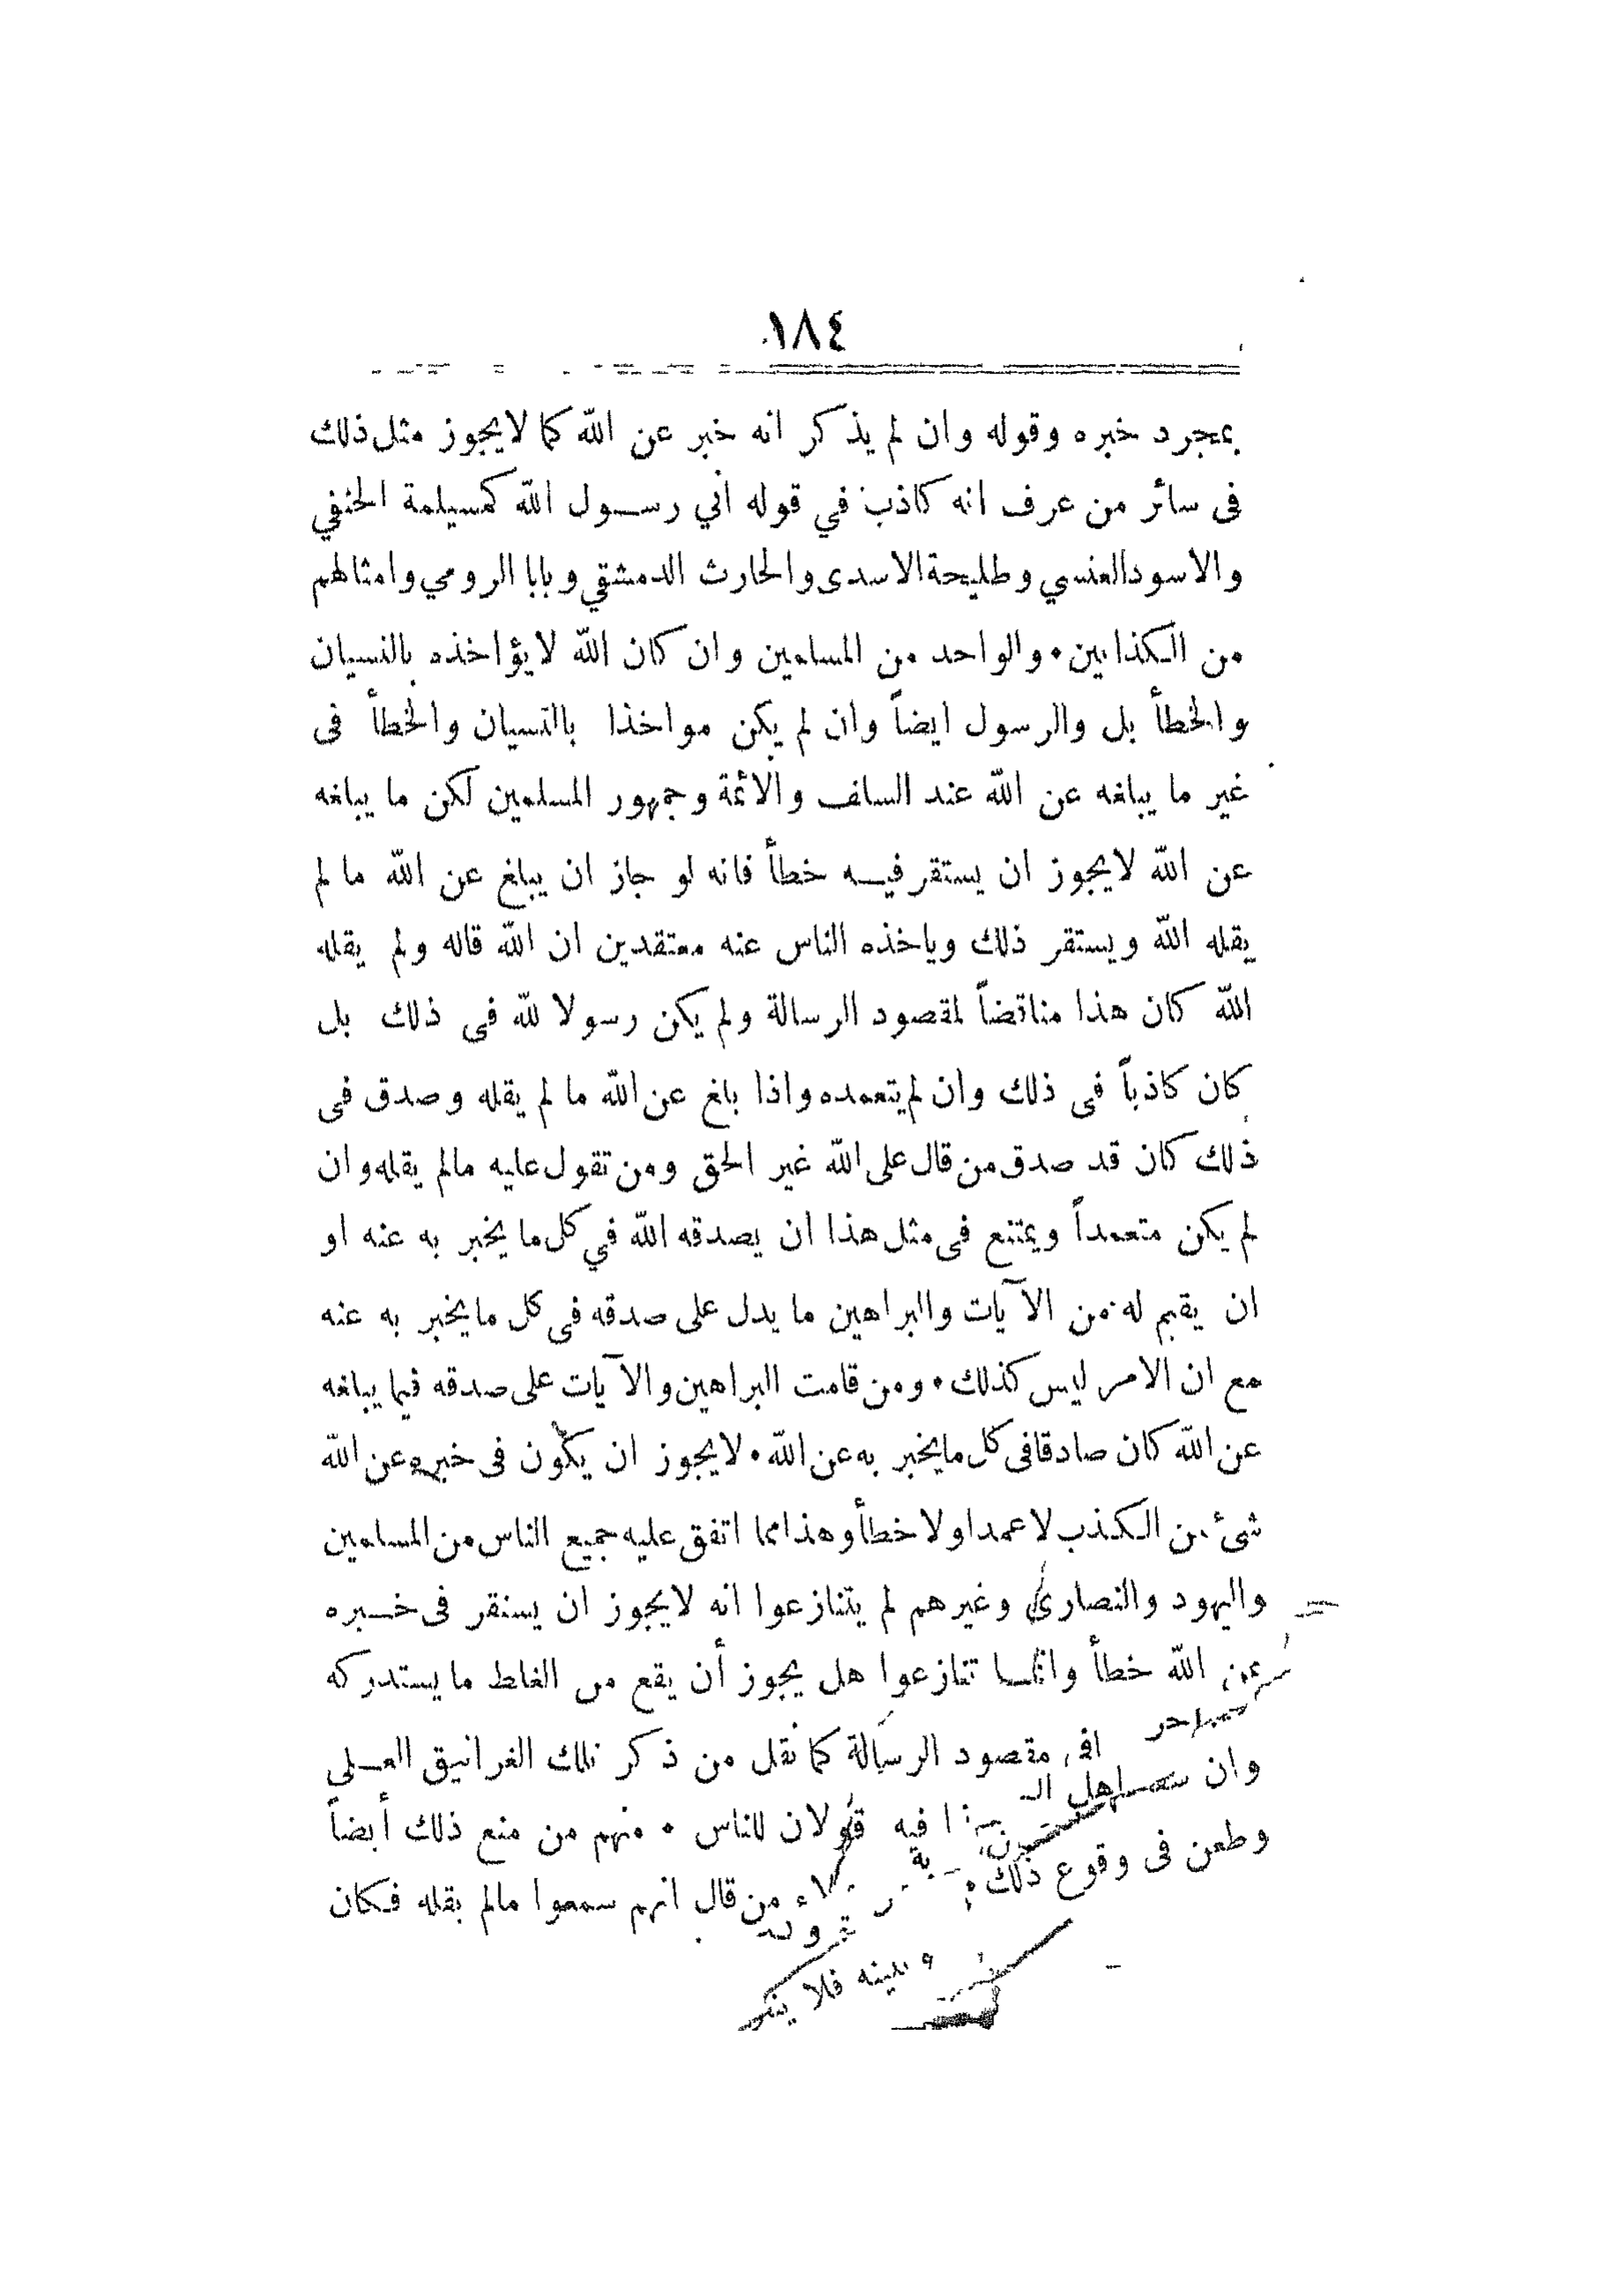 ١٨٤
بمجرد خبره وقوله وان لم يذكر انه خبر عن الله كما لا يجوز مثل ذلك
فى سائر من عرف انه كاذب في قوله أني رسول الله كمسيلمة الحنفي
والاسود العنسي وطليحة الاسدى والحارث الدمشقي وبابا الرومي وامثالهم
من الكذابين • والواحد من المسلمين وان كان الله لا يؤاخذه بالنسيان
والخطأ بل والرسول ايضاً وان لم يكن مواخذا بالنسيان والخطأ فى
غير ما يبلغه عن الله عند السلف والائمة وجمهور المسلمين لكن ما يبلغه
عن الله لا يجوز ان يستقر فيه خطأ فانه لو جاز ان يبلغ عن الله ما لم
يقله الله ويستقر ذلك وياخذه الناس عنه معتقدين ان الله قاله ولم يقله
الله كان هذا مناقضاً لمقصود الرسالة ولم يكن رسولا لله فى ذلك بل
كان كاذباً فى ذلك وان لم يتعمده واذا بلغ عن الله ما لم يقله وصدق فى
ذلك كان قد صدق من قال على الله غير الحق ومن تقول عليه مالم يقله وان
لم يكن متعمداً ويمتنع فى مثل هذا ان يصدقه الله في كل ما يخبر به عنه او
ان يقيم له من الآيات والبراهين ما يدل على صدقه فى كل ما يخبر به عنه
مع ان الامر ليس كذلك • ومن قامت البراهين والآيات على صدقه فيما يبلغه
عن الله كان صادقا فى كل ما يخبر به عن الله • لا يجوز ان يكون فى خبره عن الله
شئ من الكذب لا عمدا ولا خطأ وهذا مما اتفق عليه جميع الناس من المسلمين
واليهود والنصارى وغيرهم لم يتنازعوا انه لا يجوز ان يستقر فى خبره
عن الله خطأ وانما تنازعوا هل يجوز أن يقع من الغلط ما يستدركه
مقصود الرسالة كما نقل من ذكر تلك الغرانيق العلى
وان
فيه قولان للناس • منهم من منع ذلك أيضاً
وطعن فى وقوع ذلك
من قال انهم سمعوا مالم يقله فكان
فلا